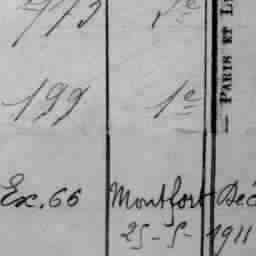 773 1e
199 1e
— PARIS ET L
Ex. 66 Montfort Déc
25-5-1911